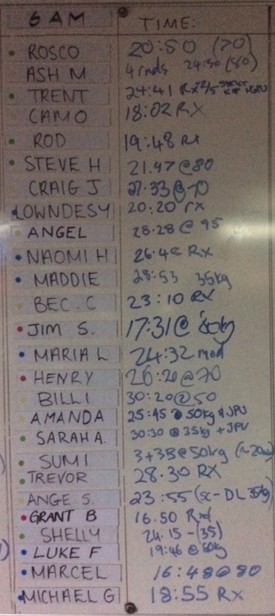 6 AM TIME:
ROSCO 20:50 (70)
ASH M 4 rnds 24:50 (50)
TRENT 24:41 RX
CAMO 18:02 RX
ROD 19:48 RX
STEVE H 21.47 @80
CRAIG J 27:33 @70
LOWNDESY 20:20 rx
ANGEL 28:28 @ 95
NAOMI H 26:40 RX
MADDIE 28:53 35kg
BEC. C 23:10 RX
JIM S. 17:31 @ 50kg
MARIA L 24:32 mod
HENRY 26:20 @70
BILLI 30:20 @50
AMANDA 25:45 @ 50kg & JPU
SARAH A. 30:30 @ 35kg + JPU
SUMI 3+38@50kg
TREVOR 28.30 RX
ANGE S. 23:55 (sc-DL 35kg)
GRANT B 16.50 Rxd
SHELLY 24.15 -(35)
LUKE F 19:46 @ 60kg
MARCEL 16:48 @ 80
MICHAEL G 18:55 RX